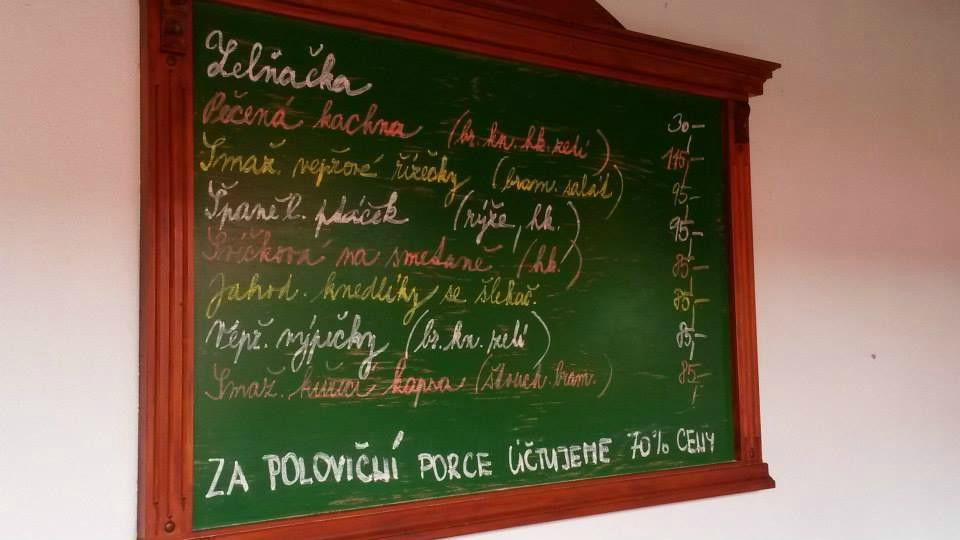 Zelňačka 30,-
Pečená kachna (br. kn. hk. zelí) 115,-
Smaž. vepřové řízečky (bram. salát) 95,-
Španěl. ptáček (rýže, hk.) 95,-
Svíčková na smetaně (hk.) 85,-
Jahod. knedlíky se šlehač. 85,-
Vepř. výpečky (br. kn. zelí) 85,-
Smaž. kuřecí kapsa (šťouch. bram.) 85,-
ZA POLOVIČNÍ PORCE ÚČTUJEME 70% CENY